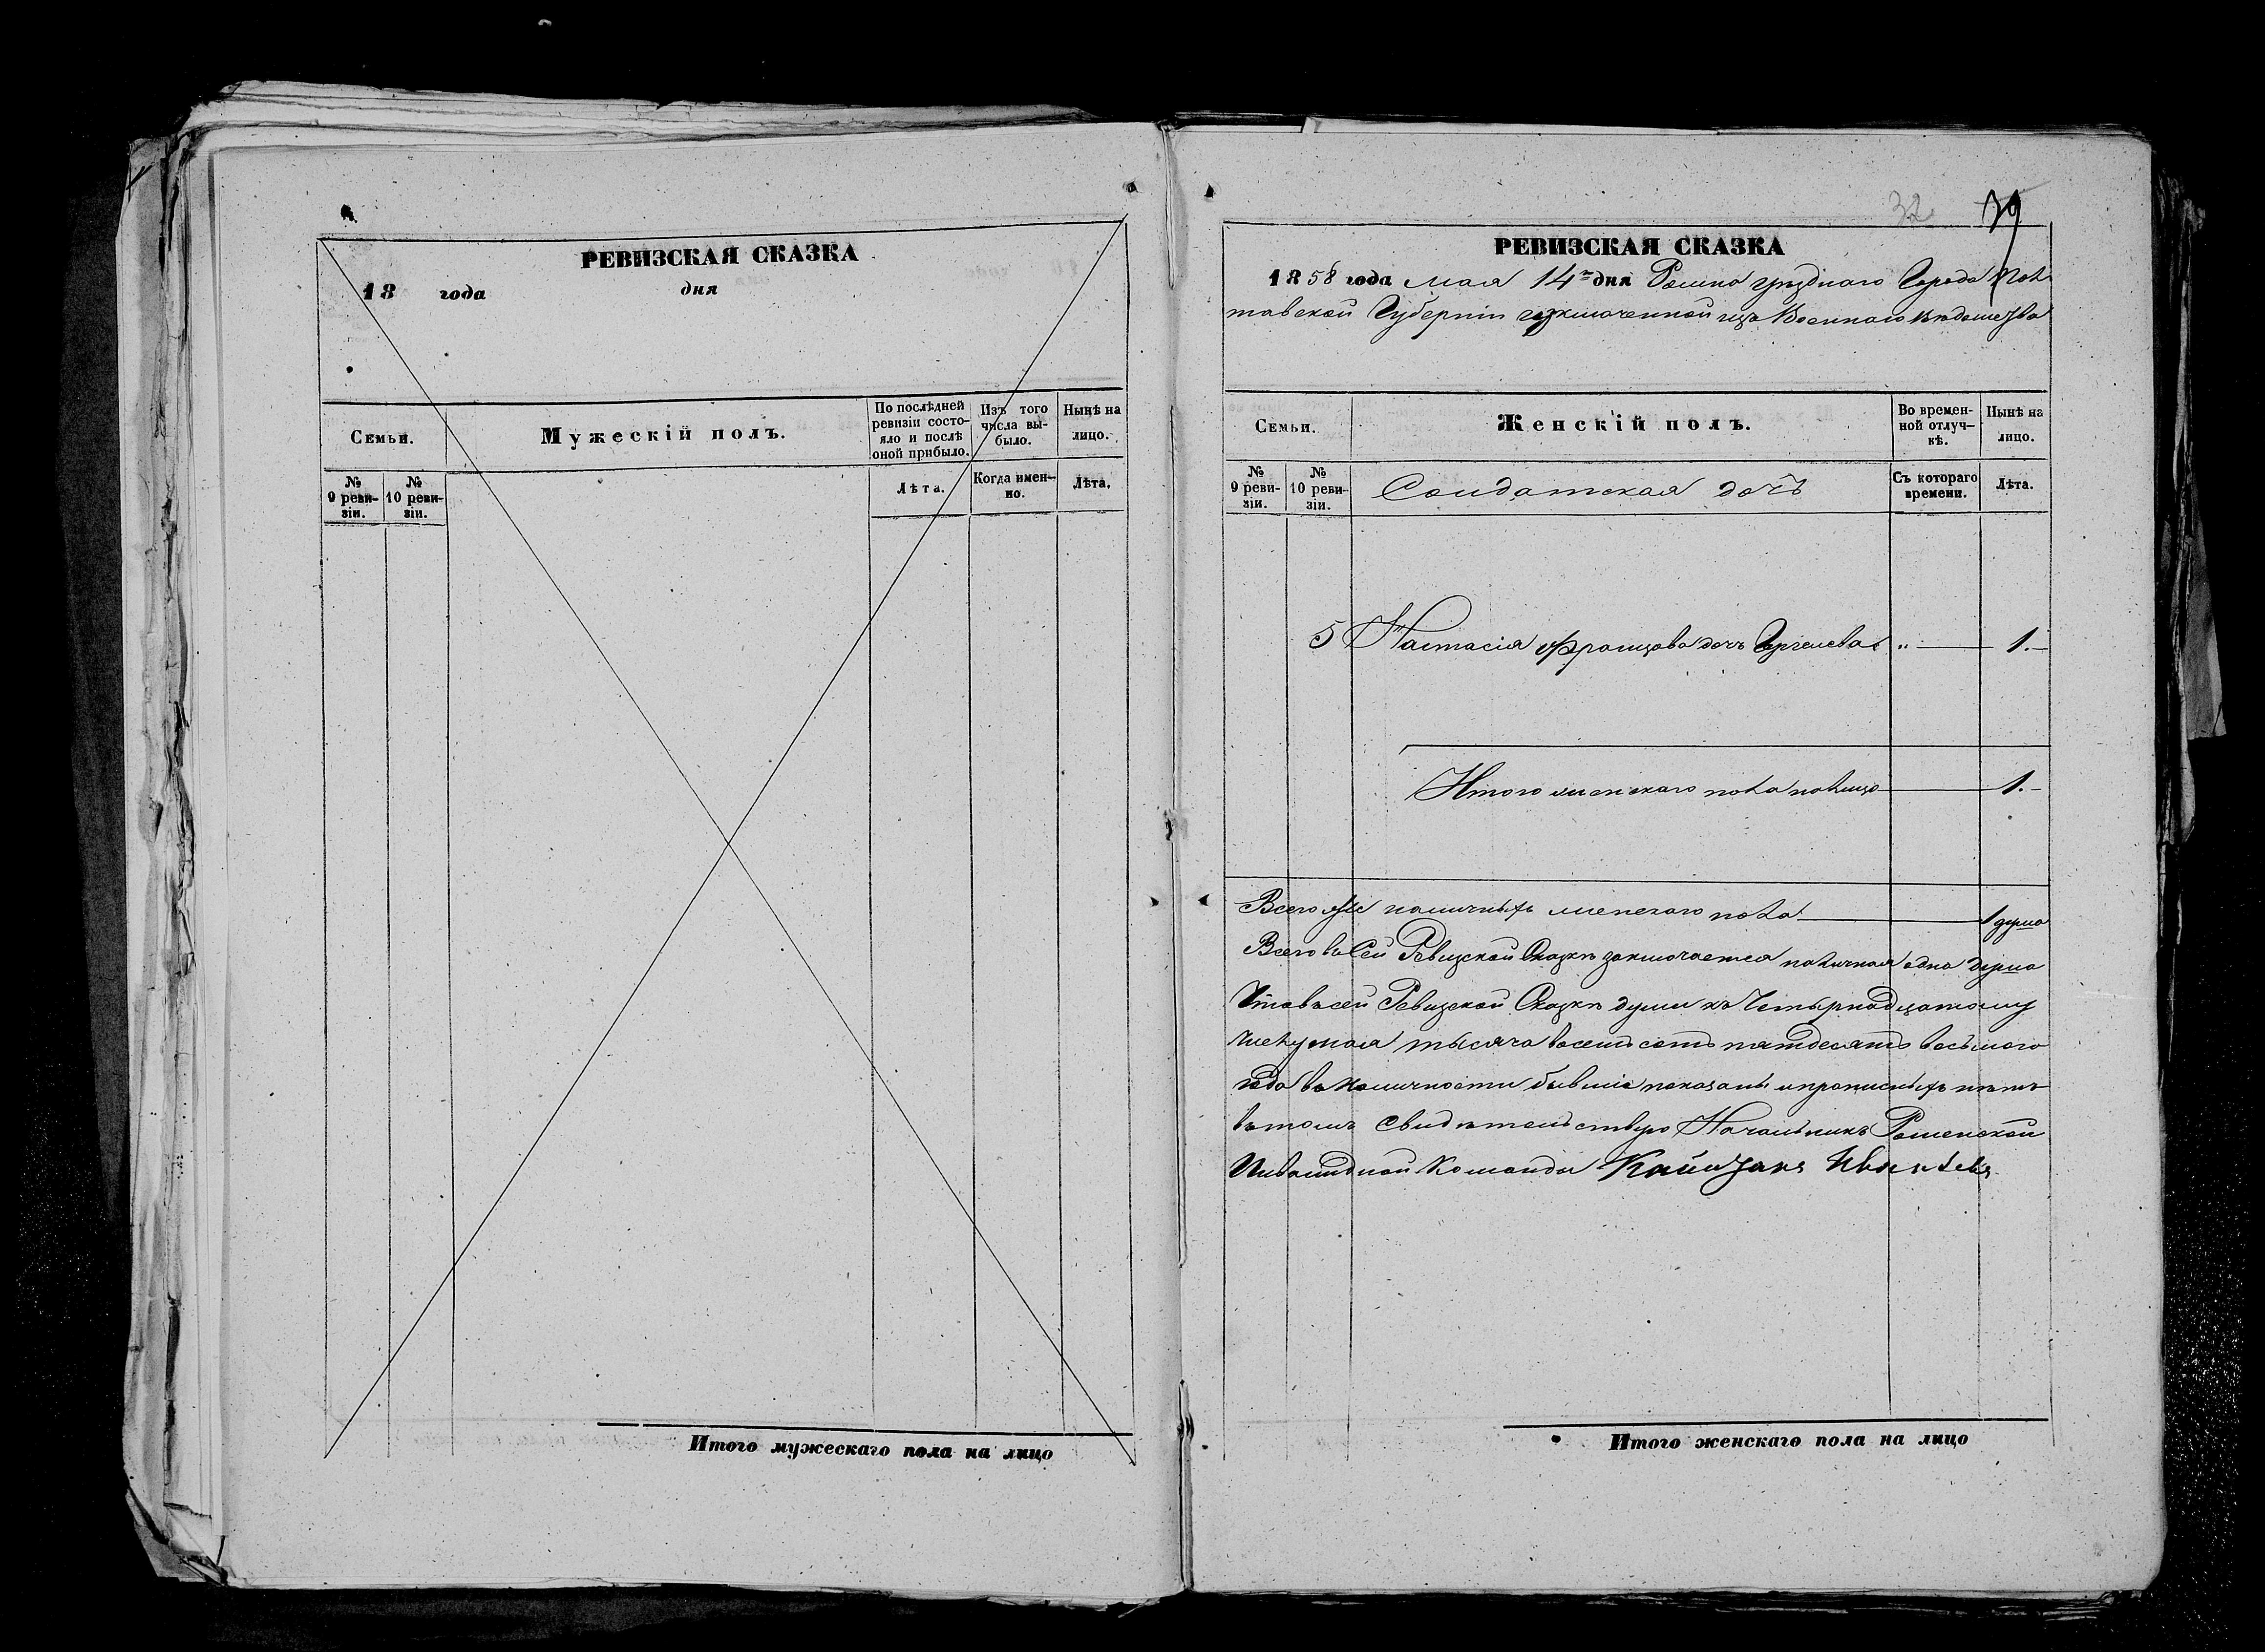 РЕВИЗСКАЯ СКАЗКА
18 года дня
Семьи.
Мужескій полъ.
По послѣдней ревизіи состо-
яло и послѣ оной прибыло.
Изъ того числа вы-
было.
Нынѣ на лицо.
№ 9 реви-
зіи.
№ 10 реви-
зіи.
Лѣта.
Когда имен-
но.
Лѣта.
Итого мужескаго пола на лицо
32 79
РЕВИЗСКАЯ СКАЗКА
1858 года мая 14го дня Ромно уѣзднаго Города Пол
тавской Губерніи изключенной изъ Военнаго вѣдомства
Семьи.
Женскій полъ.
Во времен-
ной отлуч-
кѣ.
Нынѣ на лицо.
№ 9 реви-
зіи.
№ 10 реви-
зіи.
Солдатская дочь
Съ котораго времени.
Лѣта.
5 Настасія Францова дочъ " 1.
Итого женскаго пола налицо 1.
Всего наличныхъ женскаго пола 1 душа
Всего въ Сей Ревизской Сказкѣ заключается наличная одна душа
Что въ сей Ревизской Сказкѣ души къ Четырнадцатому
числу мая тысяча восемь сотъ пятдесятъ восьмого
года въ наличности бывшіе показаны и прописныхъ нѣтъ
въ томъ свидѣтельствую Начальникъ Роменской
Инвалидной Команды Капитанъ
Итого женскаго пола на лицо